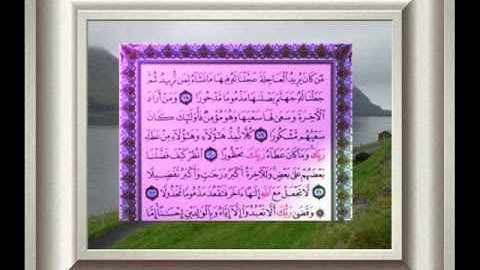 مَّن كَانَ يُرِيدُ ٱلْعَاجِلَةَ عَجَّلْنَا لَهُۥ فِيهَا مَا نَشَآءُ لِمَن نُّرِيدُ ثُمَّ
جَعَلْنَا لَهُۥ جَهَنَّمَ يَصْلَىٰهَا مَذْمُومًا مَّدْحُورًا ١٨ وَمَنْ أَرَادَ
ٱلْـَٔاخِرَةَ وَسَعَىٰ لَهَا سَعْيَهَا وَهُوَ مُؤْمِنٌ فَأُو۟لَـٰٓئِكَ كَانَ
سَعْيُهُم مَّشْكُورًا ١٩ كُلًّا نُّمِدُّ هَـٰٓؤُلَآءِ وَهَـٰٓؤُلَآءِ مِنْ عَطَآءِ
رَبِّكَ وَمَا كَانَ عَطَآءُ رَبِّكَ مَحْظُورًا ٢٠ ٱنظُرْ كَيْفَ فَضَّلْنَا
بَعْضَهُمْ عَلَىٰ بَعْضٍ وَلَلْـَٔاخِرَةُ أَكْبَرُ دَرَجَـٰتٍ وَأَكْبَرُ تَفْضِيلًا
٢١ لَّا تَجْعَلْ مَعَ ٱللَّهِ إِلَـٰهًا ءَاخَرَ فَتَقْعُدَ مَذْمُومًا مَّخْذُولًا ٢٢
۞ وَقَضَىٰ رَبُّكَ أَلَّا تَعْبُدُوٓا۟ إِلَّآ إِيَّاهُ وَبِٱلْوَٰلِدَيْنِ إِحْسَـٰنًا إِمَّا